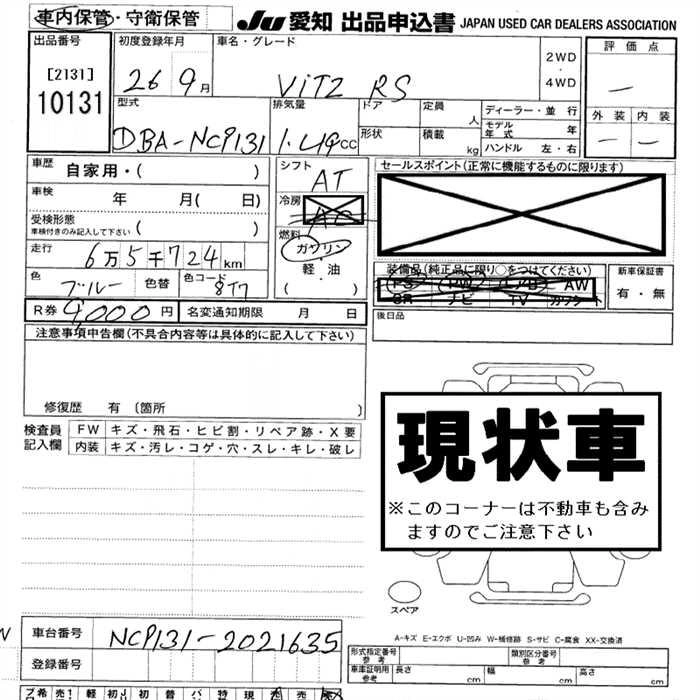 車内保管・守衛保管 JU 愛知 出品申込書 JAPAN USED CAR DEALERS ASSOCIATION
出品番号 初度登録年月 車名・グレード 評価点
[2131] 26 9月 VITZ RS 2WD ・ 4WD —
10131
型式 排気量 ドア 定員 人 ディーラー・並行 外装 内装
DBA-NCP131 1.49cc 形状 積載 kg モデル年式 年 — —
ハンドル 左・右
車歴 自家用・( ) シフト AT セールスポイント(正常に機能するものに限ります)
車検 年 月( 日) 冷房 AC
受検形態 車検付きのみ記入して下さい ( ) 燃料
走行 6万5千724km ガソリン・軽・油 ( )
装備品(純正品に限り○をつけてください) 新車保証書
色 ブルー 色替 色コード 8T7 PS PW エアB AW 有・無
SR ナビ TV カワシート
R券 9,000円 名変通知期限 月 日 後日品
注意事項申告欄(不具合内容等は具体的に記入して下さい)
修復歴 有 〔箇所 〕
検査員記入欄 FW キズ・飛石・ヒビ割・リペア跡・X要
内装 キズ・汚レ・コゲ・穴・スレ・キレ・破レ
現状車
※このコーナーは不動車も含み
ますのでご注意下さい
スペア
A-キズ E-エクボ U-凹み W-補修跡 S-サビ C-腐食 XX-交換済
車台番号 NCP131-2021635
登録番号
形式指定番号 参考 類別区分番号 参考
車庫証明用 参考 長さ cm 幅 cm 高さ cm